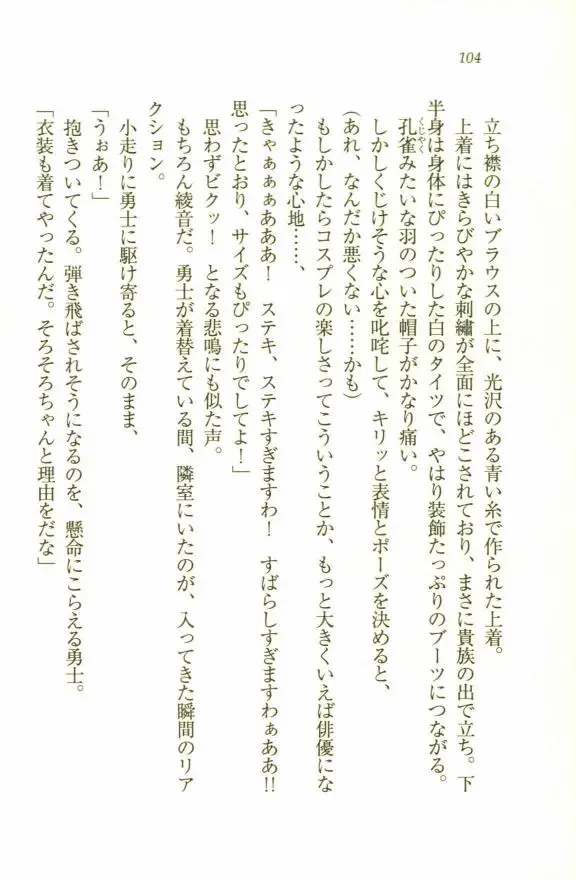 104
立ち襟の白いブラウスの上に、光沢のある青い糸で作られた上着。
上着にはきらびやかな刺繡が全面にほどこされており、まさに貴族の出で立ち。下
半身は身体にぴったりした白のタイツで、やはり装飾たっぷりのブーツにつながる。
孔雀みたいな羽のついた帽子がかなり痛い。
くじゃく
しかしくじけそうな心を叱咤して、キリッと表情とポーズを決めると、
(あれ、なんだか悪くない……かも)
もしかしたらコスプレの楽しさってこういうことか、もっと大きくいえば俳優にな
ったような心地……、
「きゃぁぁぁあああ！　ステキ、ステキすぎますわ！　すばらしすぎますわぁああ!!
思ったとおり、サイズもぴったりでしてよ！」
思わずビクッ！　となる悲鳴にも似た声。
もちろん綾音だ。勇士が着替えている間、隣室にいたのが、入ってきた瞬間のリア
クション。
小走りに勇士に駆け寄ると、そのまま、
「うぉあ！」
抱きついてくる。弾き飛ばされそうになるのを、懸命にこらえる勇士。
「衣装も着てやったんだ。そろそろちゃんと理由をだな」